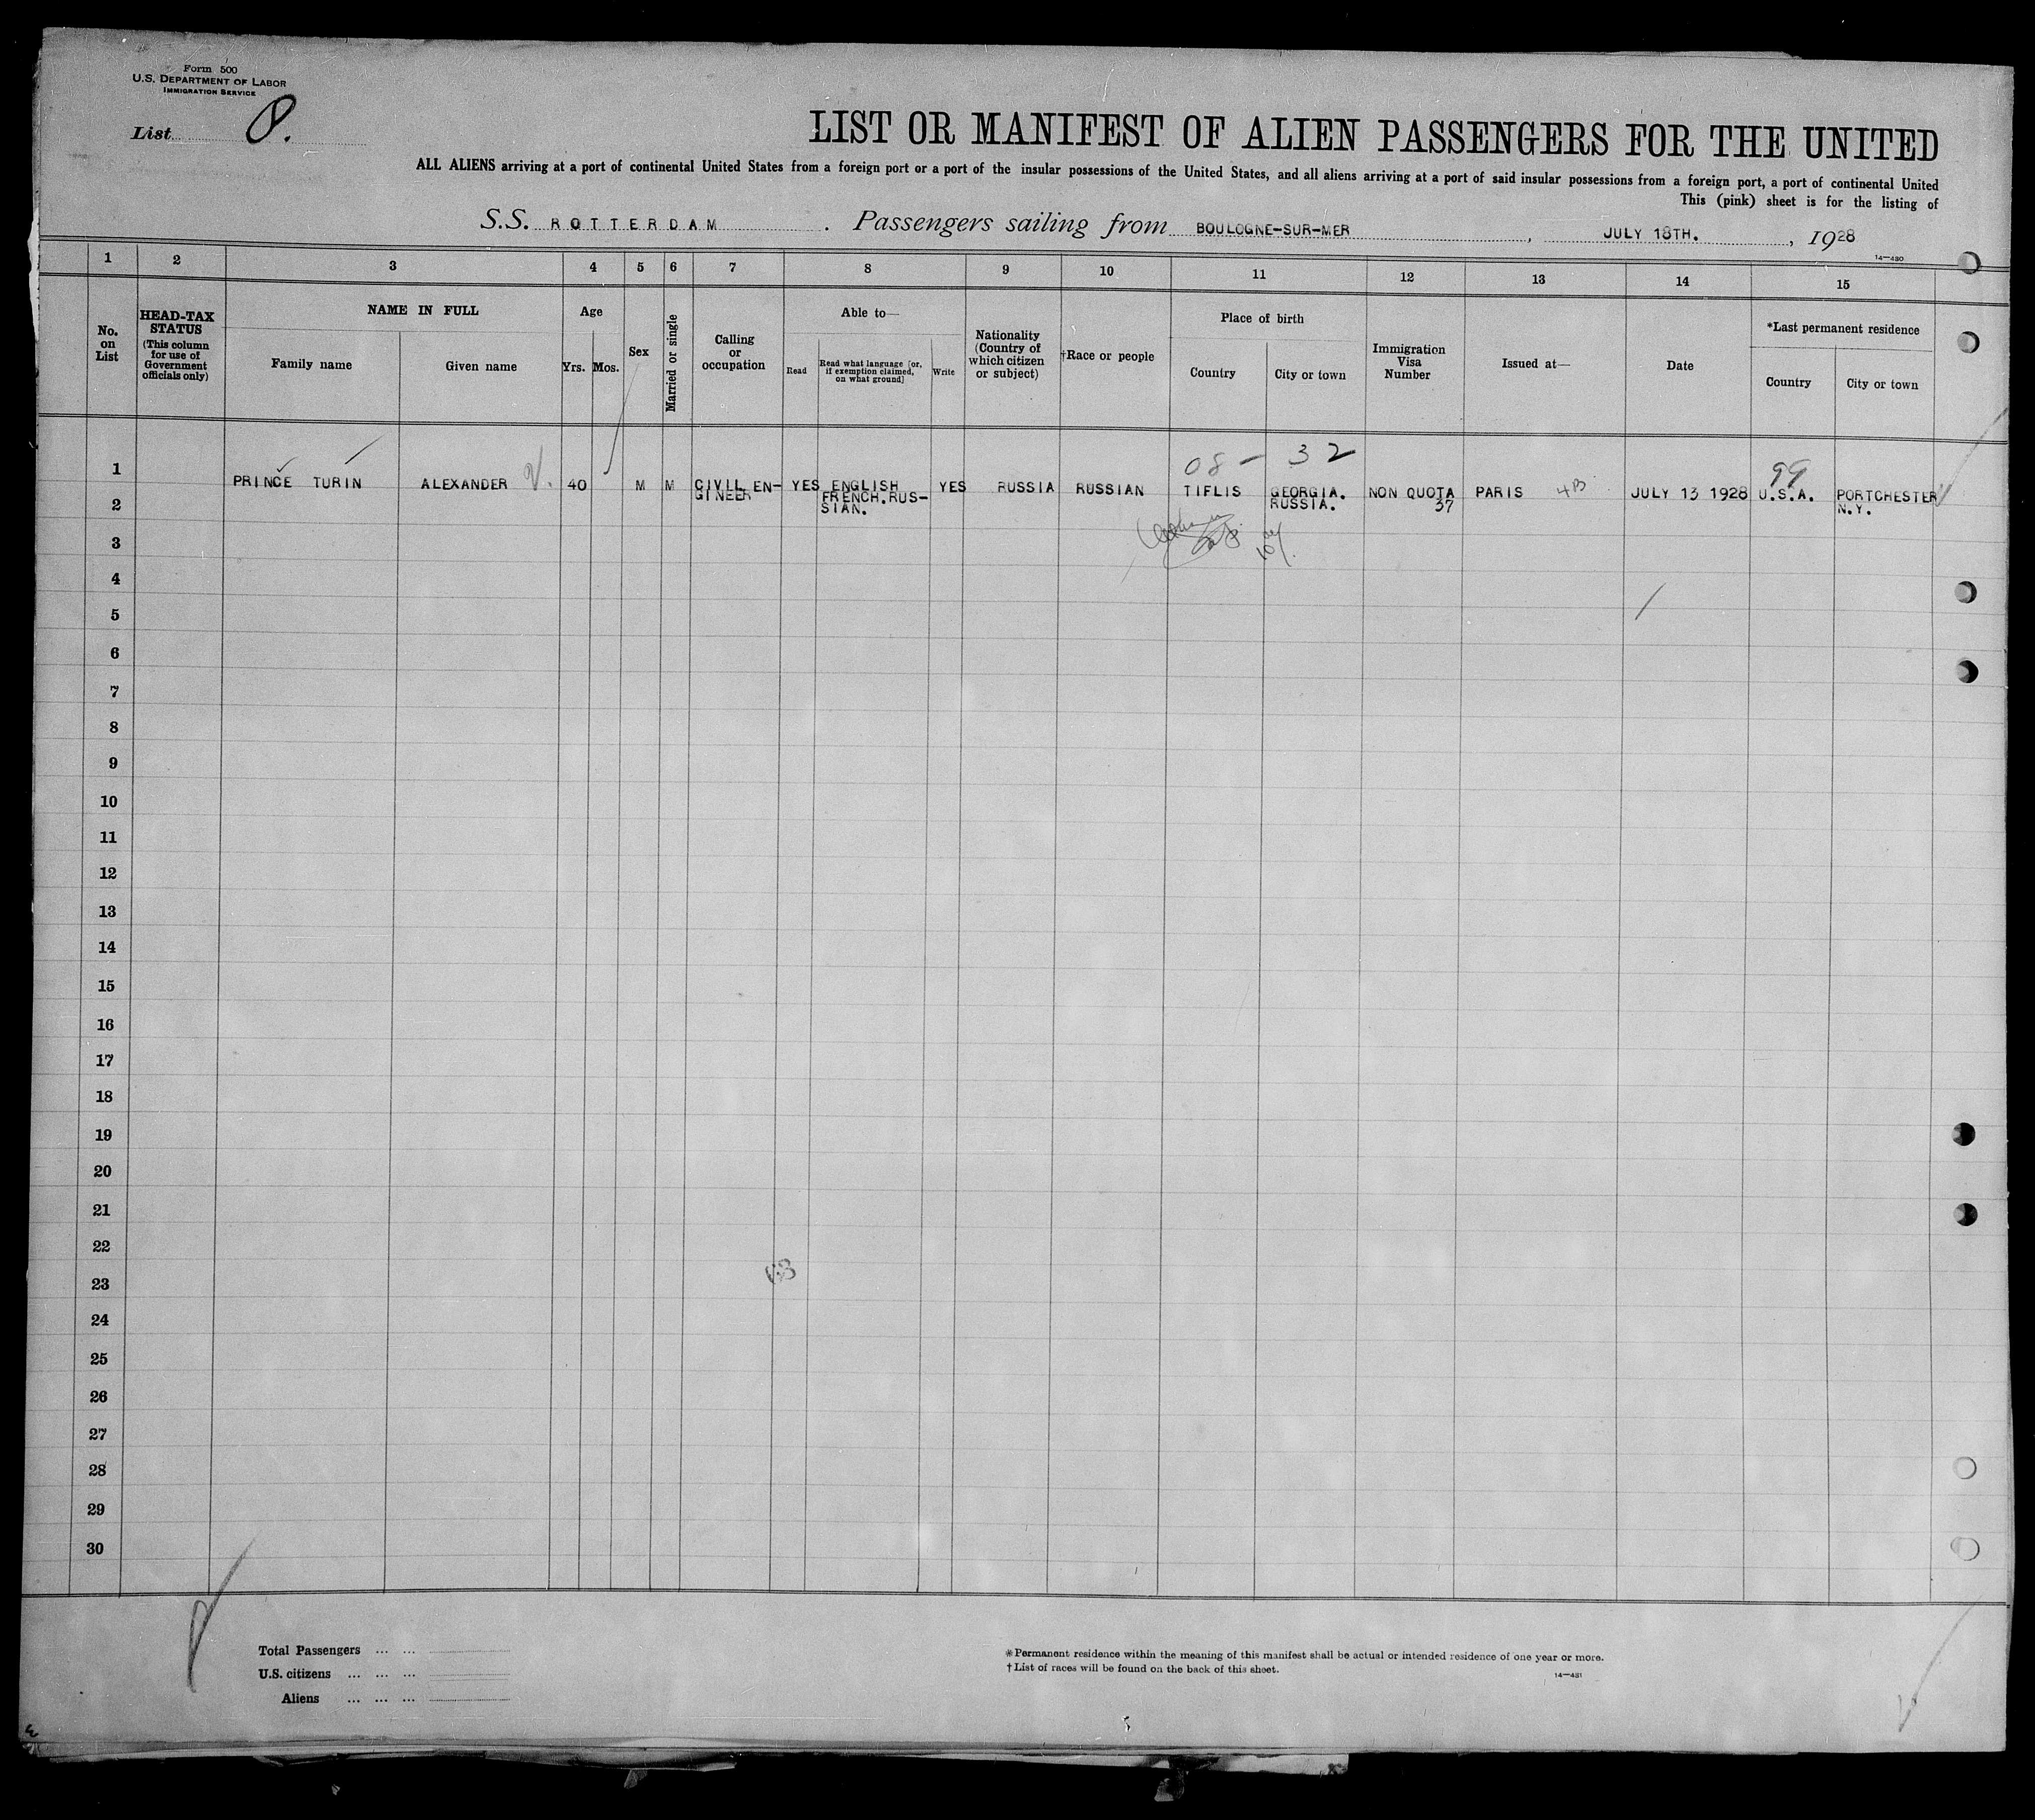 Form 500
U.S. DEPARTMENT OF LABOR
IMMIGRATION SERVICE
List 8.
LIST OR MANIFEST OF ALIEN PASSENGERS FOR THE UNITED
ALL ALIENS arriving at a port of continental United States from a foreign port or a port of the insular possessions of the United States, and all aliens arriving at a port of said insular possessions from a foreign port, a port of continental United
This (pink) sheet is for the listing of
S.S. ROTTERDAM . Passengers sailing from BOULOGNE-SUR-MER , JULY 18TH. , 1928
14—430
1 2 3 4 5 6 7 8 9 10 11 12 13 14 15
No. on List
HEAD-TAX STATUS (This column for use of Government officials only)
NAME IN FULL
Family name
Given name
Age
Yrs. Mos.
Sex
Married or single
Calling or occupation
Able to—
Read
Read what language [or, if exemption claimed, on what ground]
Write
Nationality (Country of which citizen or subject)
†Race or people
Place of birth
Country
City or town
Immigration Visa Number
Issued at—
Date
*Last permanent residence
Country
City or town
08 - 32
99
1 PRINCE TURIN ALEXANDER 40 M M CIVIL EN- YES ENGLISH YES RUSSIA RUSSIAN TIFLIS GEORGIA. NON QUOTA PARIS 4B JULY 13 1928 U.S.A. PORTCHESTER
GINEER FRENCH.RUS- RUSSIA. 37 N.Y.
SIAN.
2
3
4
5
6
7
8
9
10
11
12
13
14
15
16
17
18
19
20
21
22
23
24
25
26
27
28
29
30
Total Passengers ... ...
U.S. citizens ... ... ...
Aliens ... ... ...
*Permanent residence within the meaning of this manifest shall be actual or intended residence of one year or more.
†List of races will be found on the back of this sheet.
14—431